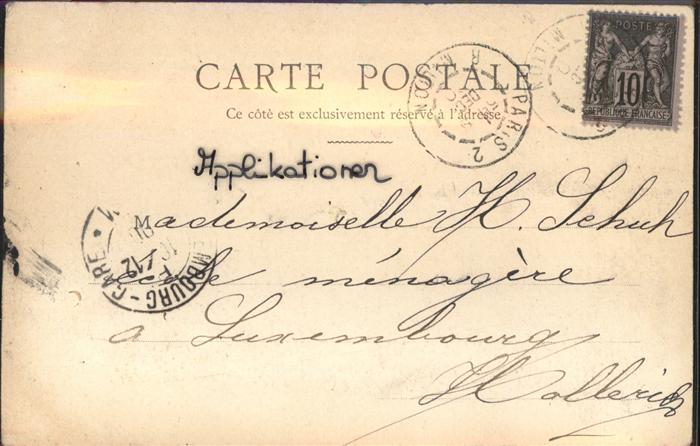 POSTE
10
RÉPUBLIQUE FRANÇAISE
CARTE POSTALE
PARIS 2
Ce côté est exclusivement réservé à l'adresse
Applikationen
Mademoiselle H. Schuh
école ménagère
à Luxembourg
Hollerich
MBOURG - GARE